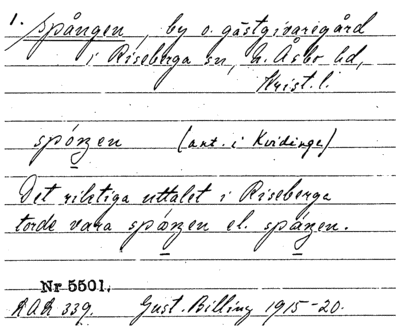 1. Spången, by o. gästgivaregård
i Riseberga sn, N. Åsbo hd,
Krist. l.
spóŋen (ant. i Kvidinge)
Det riktiga uttalet i Riseberga
torde vara spáŋen el. spåŋen.
Nr 5501.
RAÄ 339. Gust. Billing 1915-20.